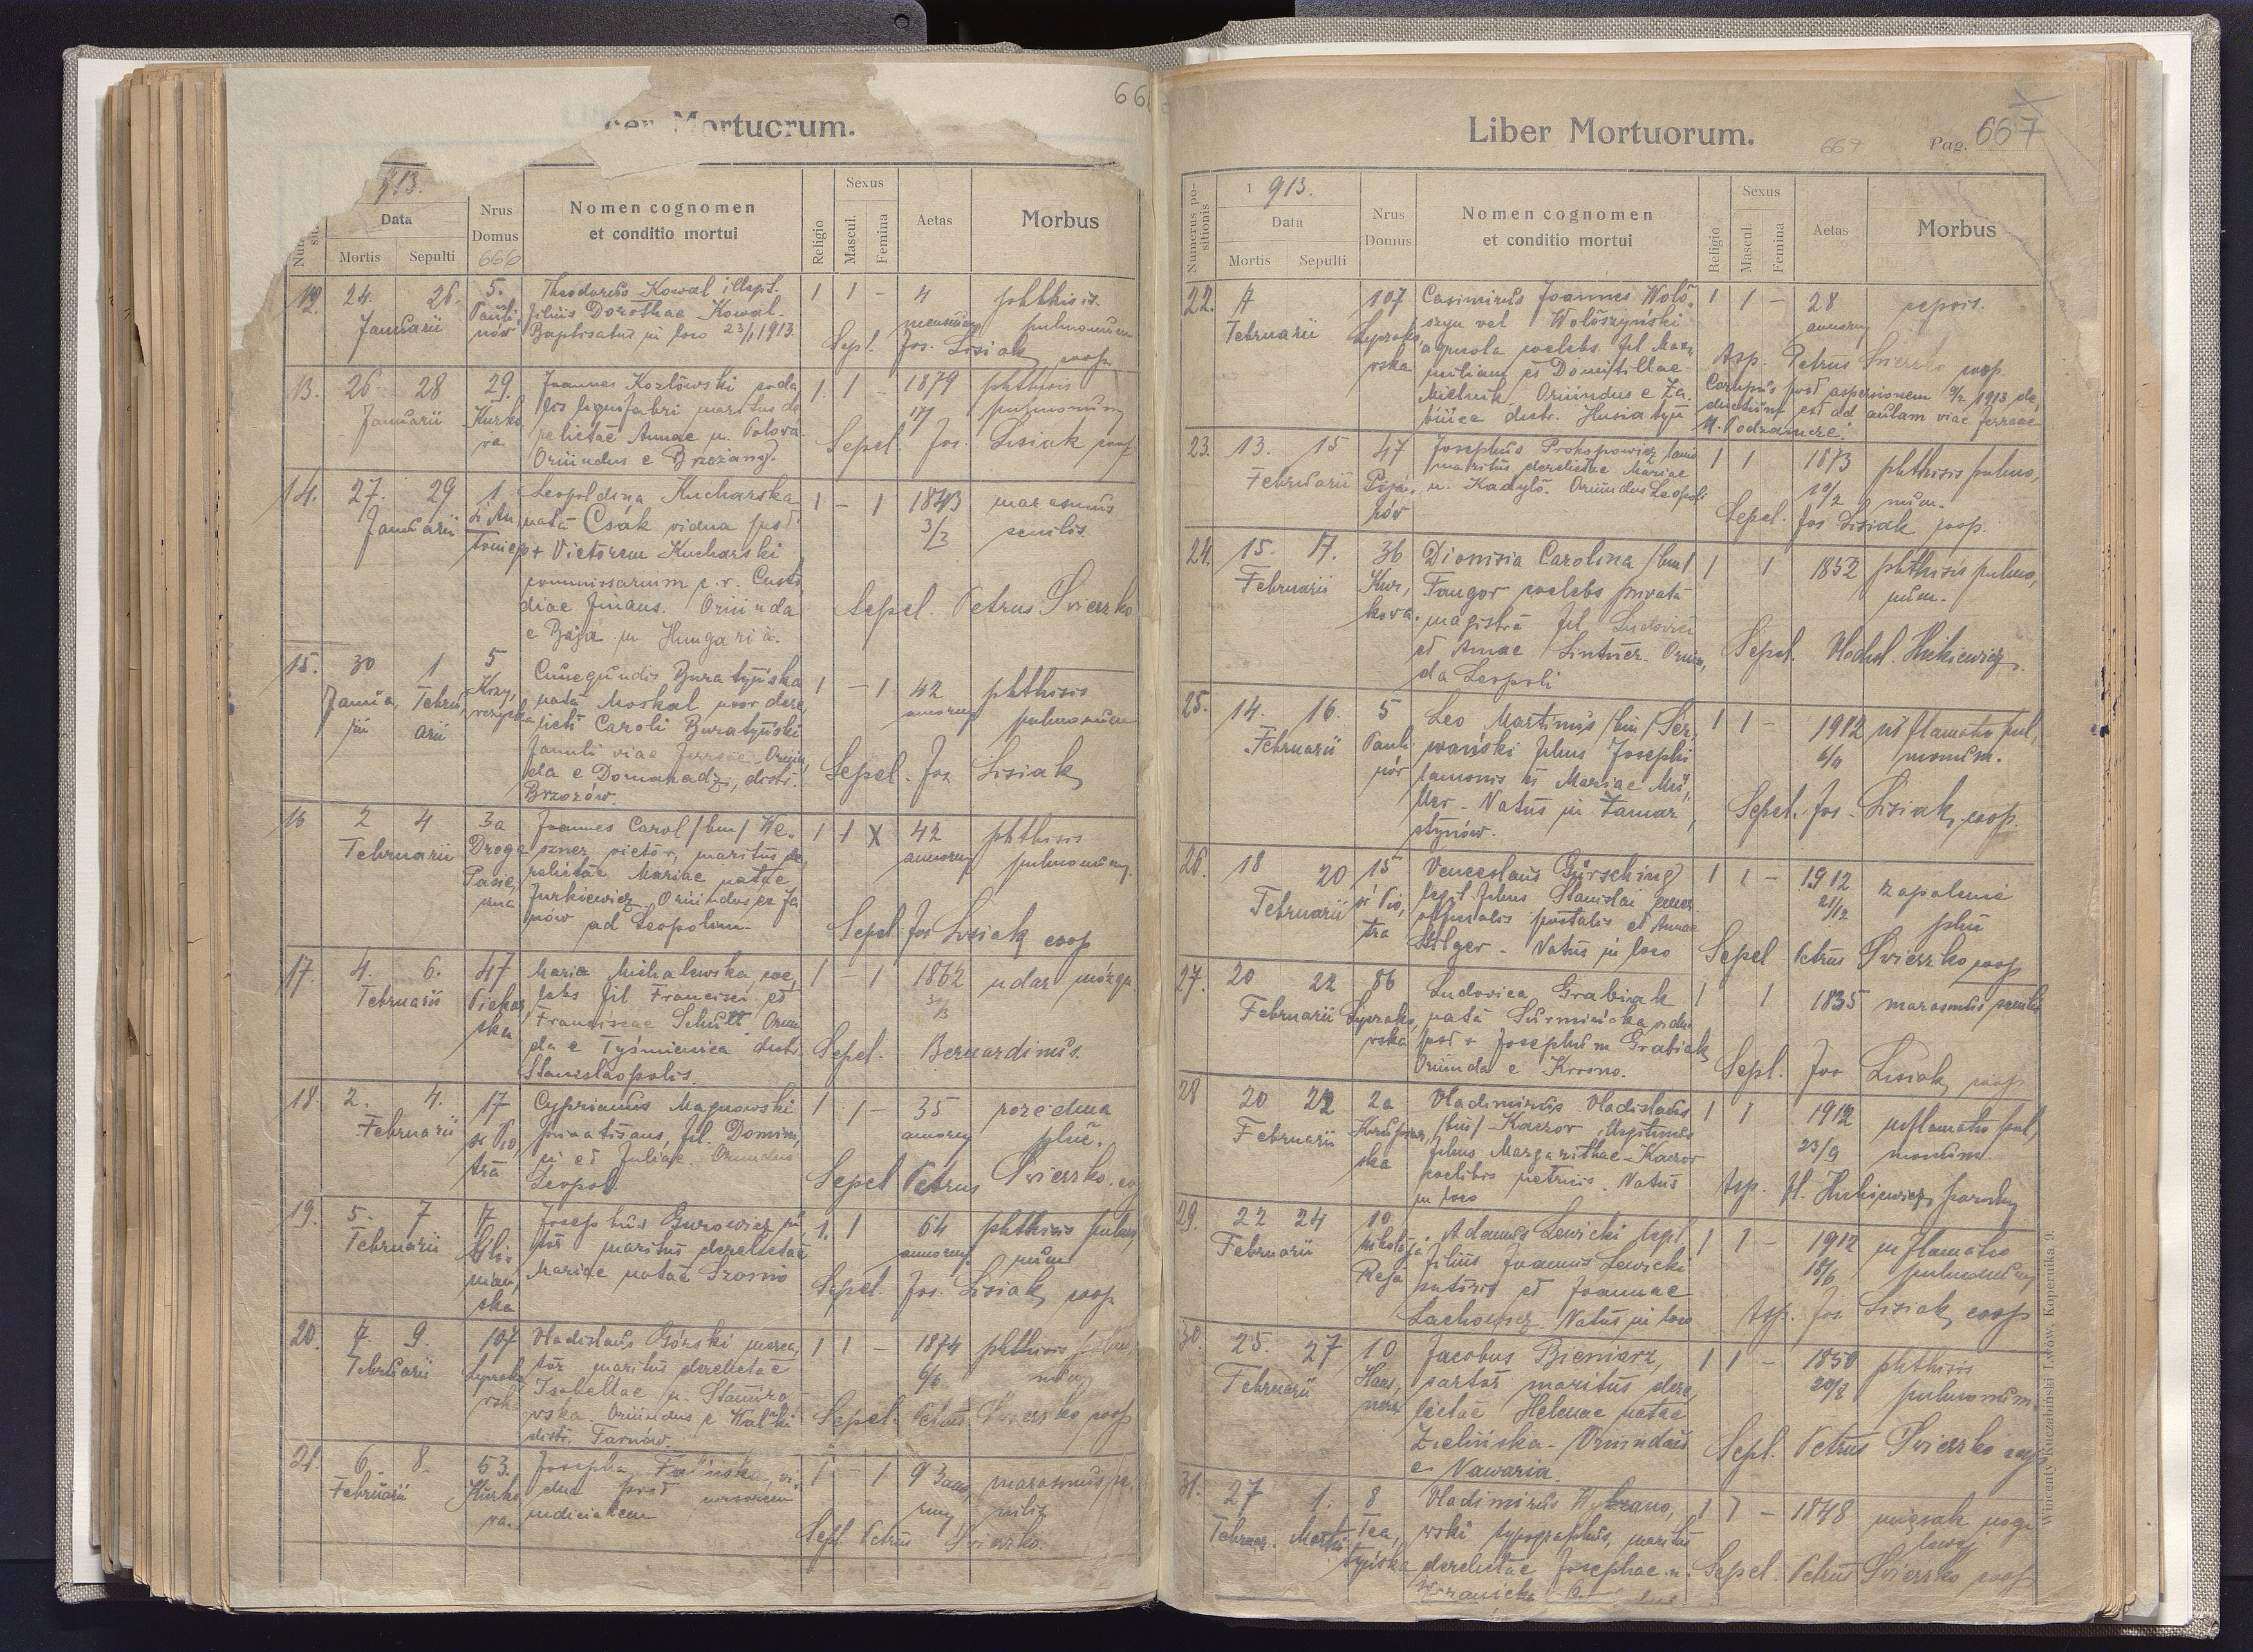 66
ber Mortuorum.
913.
Data
Mortis Sepulti
Nrus Domus
666
Nomen cognomen
et conditio mortui
Religio
Sexus
Mascul.
Femina
Aetas
Morbus
12. 24. 26. Januarii
5. Pauli nów
Theodorus Kowal illegit.
filius Dorotheae Kowal.
Baptisatus in loco 23/1 1913.
1 1 - 4 mensium
phthisis pulmonum
Sepel. Jos. Lisiak coop
13. 26. 28 Januarii
29. Kurko wa
Joannes Kozłówski soda
lis lignifabri maritus de
relictae Annae n. Połowa
Oriundus e Brzeżany.
1. 1 - 1879 17/
phthisis pulmonum
Sepel. Jos. Lisiak coop
14. 27. 29 Januarii
1 s. An toniego
Leopoldina Kucharska
nata Csák vidua post
+ Victorem Kucharski
commissarium c. r. Custo
diae finans. Oriunda
e Baja in Hungaria.
1 - 1 1843 3/3
marasmus senilis.
Sepel. Petrus Świerzko
15. 30 Janua, rii 1 Febru, arii
5
Cunegundis Buratyńska
nata Moskal uxor dere,
licti Caroli Buratyński
famuli viae ferreae. Oriun,
da e Domaradz, distr.
Brzozów.
1 - 1 42 annorum
phthisis pulmonum
Sepel. Jos Lisiak
16 2 4 Februarii
3a Droga Pasie, czna
Joannes Carol /bin/ We,
szner pictor, maritus de,
relictae Mariae natae
Jurkiewicz. Oriundus ex Ja
nów ad Leopolim.
1 1 X 42 annorum
phthisis pulmonum
Sepel. Jos Lisiak coop
17. 4. 6. Februarii
47 Piekar, ska
Maria Michalewska, coe,
lebs fil Francisci et
Franciscae Schütt. Oriun
da e Tyśmienica distr.
Stanislaopolis.
1 - 1 1862
udar mózgu
Sepel. Bernardinus.
18. 2. 4. Februarii
17 s. Pio tra
Cyprianus Magnowski
privatisans, fil. Domini,
ci et Juliae. Oriundus
Leopol.
1 1 - 35 annorum
rozedma płuc.
Sepel Petrus Świerzko. co
19. 5. 7 Februarii
17 Gli, niań, ska
Josephus Gurowicz
maritus derelictae
Mariae natae Szomio
1. 1 64 annorum
phthisis pulmo, num
Sepel. Jos. Lisiak coop
20. 7. 9. Februarii
107
Vladislaus Górski merca,
tor maritus derelictae
Isabellae n. Stamiro
wska. Oriundus e Walki
distr. Tarnów.
1 1 - 1874 6/6
phthisis pulmo, num
Sepel. Petrus Świerzko coop
21. 6. 8. Februarii
53. Kurko wa.
Josepha Falińska, vi,
dua post
judicialem
1 - 1 93 anno, rum
marasmus se, nilis
Sepel. Petrus Świerzko.
Liber Mortuorum.
667 Pag. 667
Numerus po-
sitionis
1 913.
Data
Mortis Sepulti
Nrus
Domus
Nomen cognomen
et conditio mortui
Religio
Sexus
Mascul.
Femina
Aetas
Morbus
22. 7 Februarii
107
Casimirus Joannes Woło,
szyn vel Wołoszyński
agricola coelebs fil Maxi
miliani et Domitillae
Mielnik. Oriundus e Za,
distr. Husiatyn
1 1 - 28 annorum
sepsis.
Asp. Petrus Świerzko coop.
Corpus post aspersionem 9/2 1913 de,
ductum est ad aulam viae ferreae
Podzamcze.
23. 13. 15 Februarii
47 Pija, rów
Josephus Prokopowicz
maritus derelictae Mariae
n. Kadyło. Oriundus Leopoli
1 1 1873 10/2
phthisis pulmo, num.
Sepel. Jos Lisiak coop.
24. 15. 17. Februarii
36 Kur, kowa.
Dionisia Carolina /bin/
Fangor coelebs privata
magistra fil Ludovici
et Annae Lintner. Oriun,
da Leopoli
1 1 1852
phthisis pulmo, num.
Sepel. Vlodisl. Hickiewicz.
25. 14. 16. Februarii
5 Pauli nów
Leo Martinus /bin/ Ser,
wański filius Josephi
lanionis et Mariae Mü,
ller. Natus in Zamar,
stynów.
1 1 - 1912 6/11
inflamatio pul, monum.
Sepel. Jos. Lisiak, coop.
26. 18 20 Februarii
15 s. Pio, tra
Venceslaus Gürsching
legit. filius Stanislai
officialis postalis et Annae
Stilger. Natus in loco
1 1 - 1912 21/12
zapalenie płuc
Sepel Petrus Świerzko coop
27. 20 22 Februarii
86
Ludovica Grabiak
nata Surmińska vidua
post + Josephum Grabiak
Oriunda e Krosno.
1 1 1835
marasmus senilis
Sepel. Jos Lisiak coop
28 20 22 Februarii
2a Krupiar, ska
Vladimirus Vladislaus
/bin/ Kaczor illegitimus
filius Margarithae Kaczor
coelibis nutricis. Natus
in loco
1 1 1912 23/9
inflamatio pul, monum.
Asp. Vl. Hickiewicz, parochus
29. 22 24 Februarii
10 Mikołaja Reja
Adamus Lewicki legit.
filius Joannis Lewicki
sutoris et Joannae
Lachowicz. Natus in loco
1 1 - 1912 18/6
inflamatio pulmonum
Asp. Jos. Lisiak, coop
30. 25. 27 Februarii
10
Jacobus Bieniarz,
sartor maritus dere,
lictae Helenae natae
Zielińska. Oriundus
e Nawaria.
1 1 - 1850 20/2
phthisis pulmonum.
Sepel. Petrus Świerzko coop
31. 27 Februar. 1. Martii
8 Tea, tyńska
Vladimirus Wybrano,
wski typographus, maritus
derelictae Josephae n.
1 1 - 1848
Sepel. Petrus Świerzko coop
Wincenty Kuczabiński Lwów, Kopernika 9.